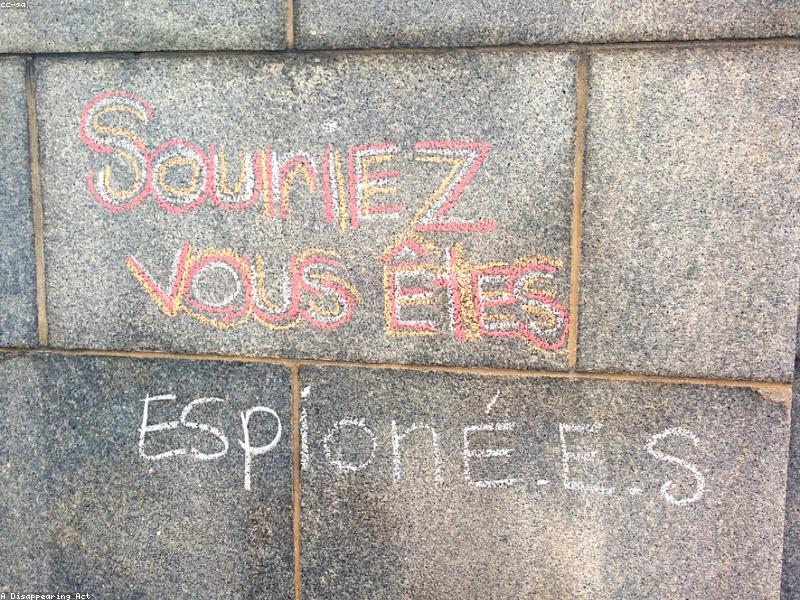 cc-sa
Souriez
vous êtes
Espioné.E.S
A Disappearing Act